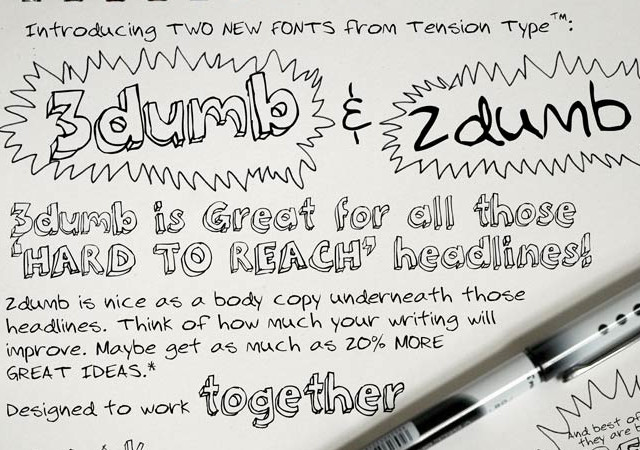 Introducing TWO NEW FONTS from Tension Type™:
3dumb & 2dumb
3dumb is Great for all those
'HARD TO REACH' headlines!
2dumb is nice as a body copy underneath those
headlines. Think of how much your writing will
improve. Maybe get as much as 20% MORE
GREAT IDEAS.*
Designed to work together
And best of
they are